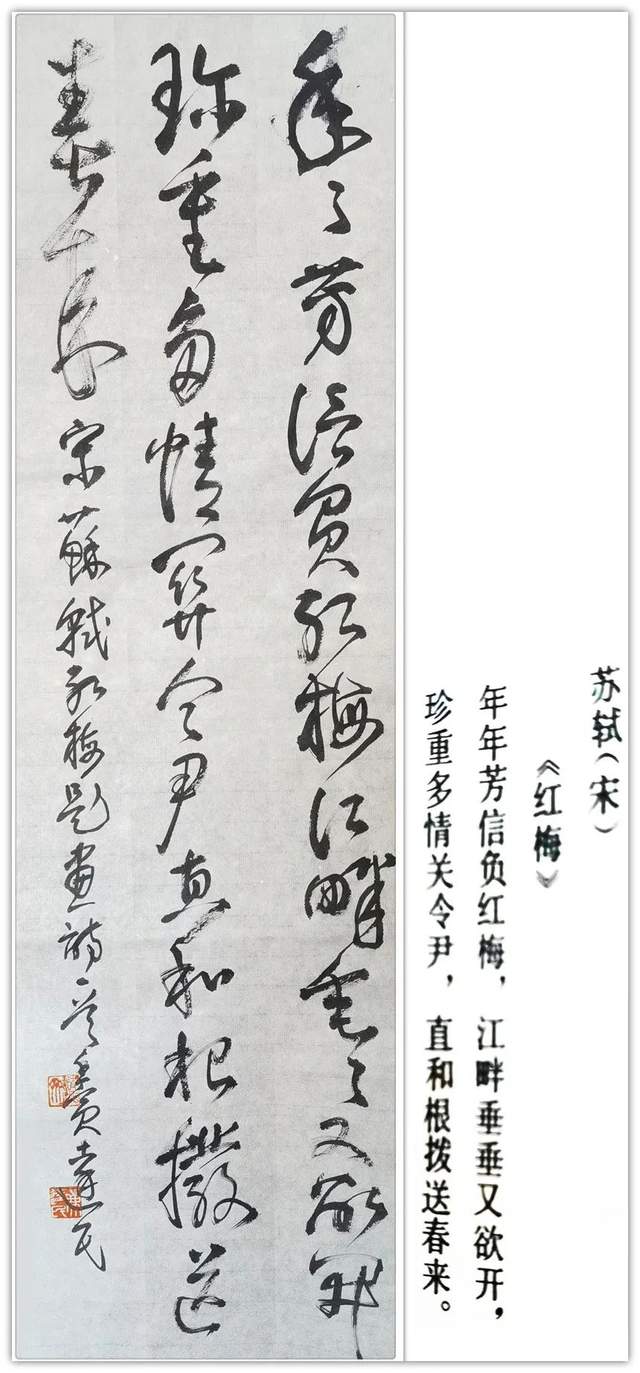 年々芳信負紅梅江畔垂々又欲開
珍重多情關令尹直和根撥送
春來 宋蘇軾紅梅題畫詩一首
苏轼（宋）
《红梅》
年年芳信负红梅，江畔垂垂又欲开，
珍重多情关令尹，直和根拨送春来。